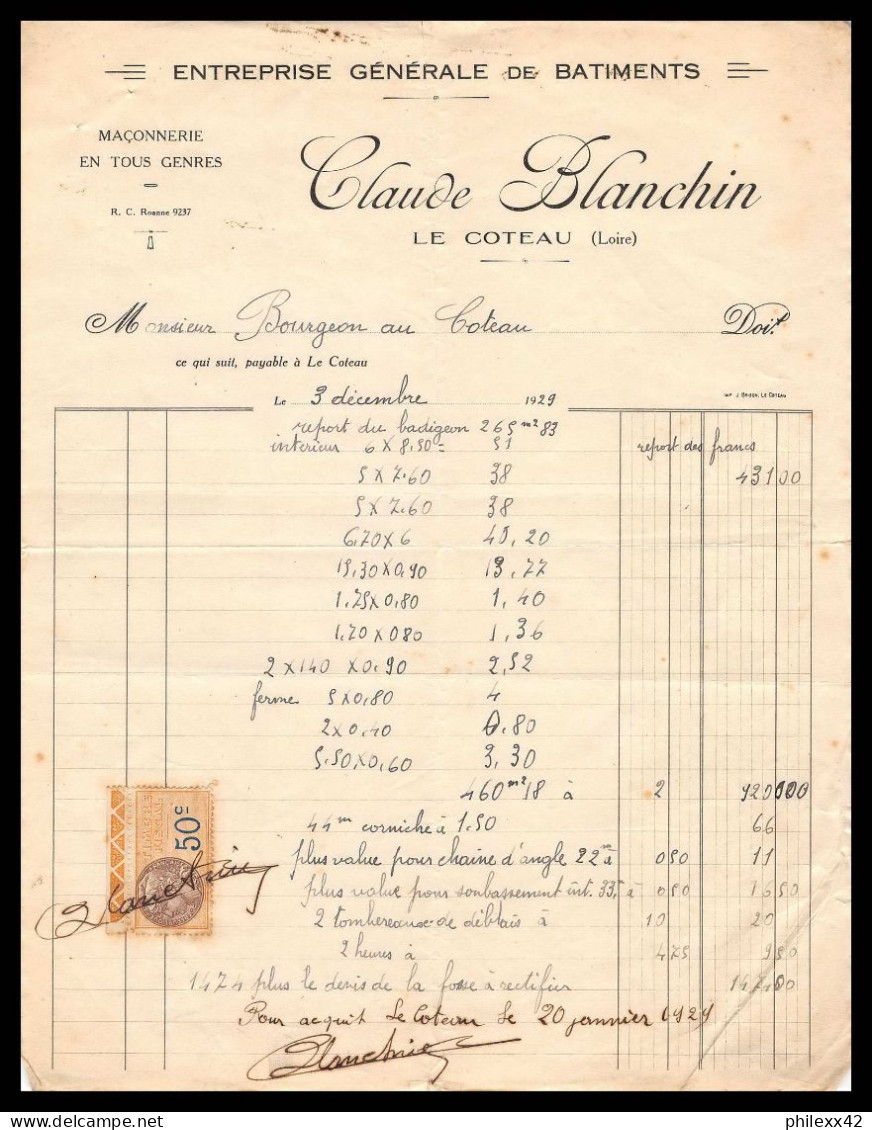 ENTREPRISE GÉNÉRALE DE BATIMENTS
MAÇONNERIE
EN TOUS GENRES
R. C. Roanne 9237
Claude Blanchin
LE COTEAU (Loire)
Monsieur Bourgeon au Coteau Doit
ce qui suit, payable à Le Coteau
Le 3 décembre 1929
report du badigeon 265 m2 83
interieur 6 X 8,50 = 51 report des francs
5 X 7.60 38 431 00
5 X 7.60 38
6,70 X 6 40,20
15,30 X 0,90 13.77
1.75 X 0,80 1,40
1,70 X 0 80 1,36
2 X 140 X 0,90 2,52
ferme 5 X 0,80 4
2 X 0,40 0,80
5,50 X 0,60 3,30
460 m2 18 à 2 920 00
44 m corniche à 1.50 66
plus value pour chaine d'angle 22 m à 0 50 11
plus value pour soubassement int. 33, à 0 50 16 50
2 tombereaux de déblais à 10 20
2 heures à 4 75 9 50
1474 plus le devis de la fosse à rectifier 147,00
Pour acquit Le Coteau le 20 janvier 1929
Blanchin
50c
Blanchin
philexx42